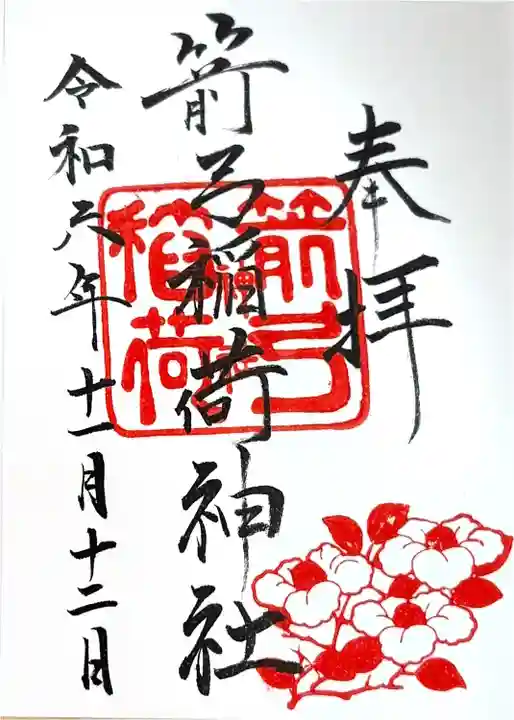 奉拝
箭弓稲荷神社
箭弓
稲荷
神社
令和六年十一月十二日